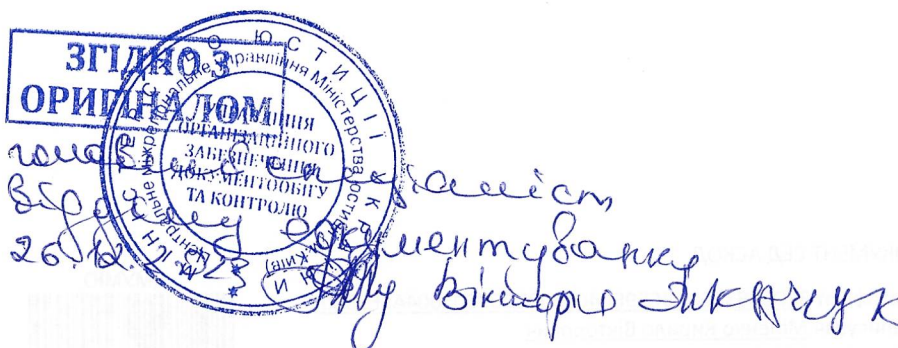 ЗГІДНО З
ОРИГІНАЛОМ
МІНІСТЕРСТВО ЮСТИЦІЇ УКРАЇНИ
Центральне міжрегіональне управління Міністерства юстиції (м. Київ)
УПРАВЛІННЯ
ОРГАНІЗАЦІЙНОГО
ЗАБЕЗПЕЧЕННЯ
ДОКУМЕНТООБІГУ
ТА КОНТРОЛЮ
головний спеціаліст
відділу документування
26.12.2023 Вікторія